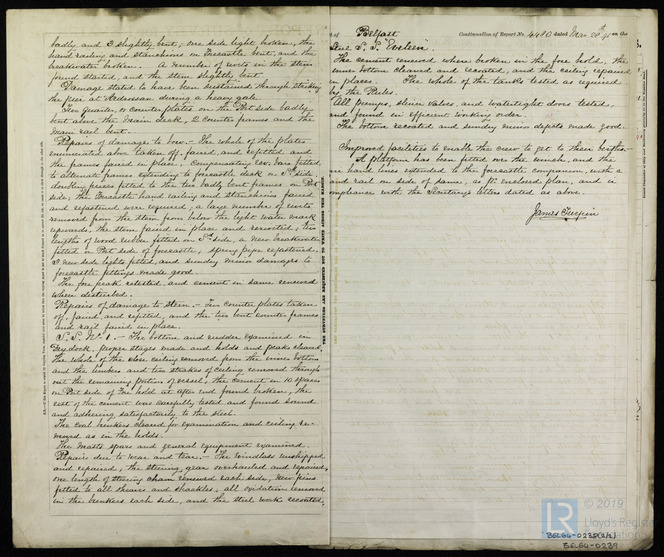 badly and 3 slightly bent, one side light broken, the
hand railing and stanchions on Forecastle bent, and the
breakwater broken. A number of rivets in the stem
found started, and the stem slightly bent.
Damage stated to have been sustained through striking
the pier at during a heavy gale.
On quarter 10 Counter plates on the Port side badly
bent above the Main deck, 2 Counter frames and the
main rail bent.
Repairs of damage to bow.- The whole of the plates
enumerated above taken off, faired, and refitted and
the frames faired in place. Compensating bars fitted
to alternate frames extending to forecastle deck on Sd side,
doubling pieces fitted to the two badly bent frames on Port
side, the Forecastle hand railing and stanchions faired
and refastened were required, a large number of rivets
removed from the stem from below the light water mark
upwards, the stem faired in place and rerivetted, two
lengths of wood fitted on Sd side, a new breakwater
fitted on Port side of forecastle, pipe refastened,
3 new side lights fitted, and sundry minor damages to
forecastle fittings made good.
The fore peak retested and cement in same renewed
where disturbed.
Repairs of damage to Stern.- Ten counter plates taken
off, faired, and refitted, and the two bent counter frames
and rail faired in place.
S.S. No 1.- The bottom and rudder examined in
Drydock, proper stages made and holds and peaks cleared,
the whole of the close ceiling removed from the inner bottoms
and the limbers and two strakes of ceiling removed through
out the remaining portions of vessel, the cement in 10 spaces
on Port side of Fore hold at after end found broken, the
rest of the cement was carefully tested and found sound
and adhering satisfactorily to the steel.
The coal bunkers cleared for examination and ceiling re-
moved as in the holds.
The masts spars and general equipment examined.
Repairs due to wear and tear.- The windlass unshipped
and repaired, the steering gear overhauled and repaired,
one length of steering chain renewed each side, new pins
fitted to all sheaves and shackles, all oxidation removed
in the bunkers each side, and the steel work recoated,
of Belfast Continuation of Report No. 4480 dated Mar 20th 95 on the
Steel S.S.
The cement renewed where broken in the fore hold, the
inner bottom cleaned and recoated, and the ceiling repaired
in places. The whole of the tanks tested as required
by the Rules.
All pumps, sluice valves, and watertight doors tested,
and found in efficient working order.
The bottom recoated and sundry minor defects made good.
Improved facilities to enable the crew to get to their berths.-
A platform has been fitted over the winch, and the
hand lines extended to the forecastle companion, with a
hand rail on side of same, as pr enclosed plan, and in
compliance with the Secretary's letters dated as above.
James Turpin
© 2019
LR
Lloyd's Register
Foundation
BEL66-0239(2/2)
BEL66-0239